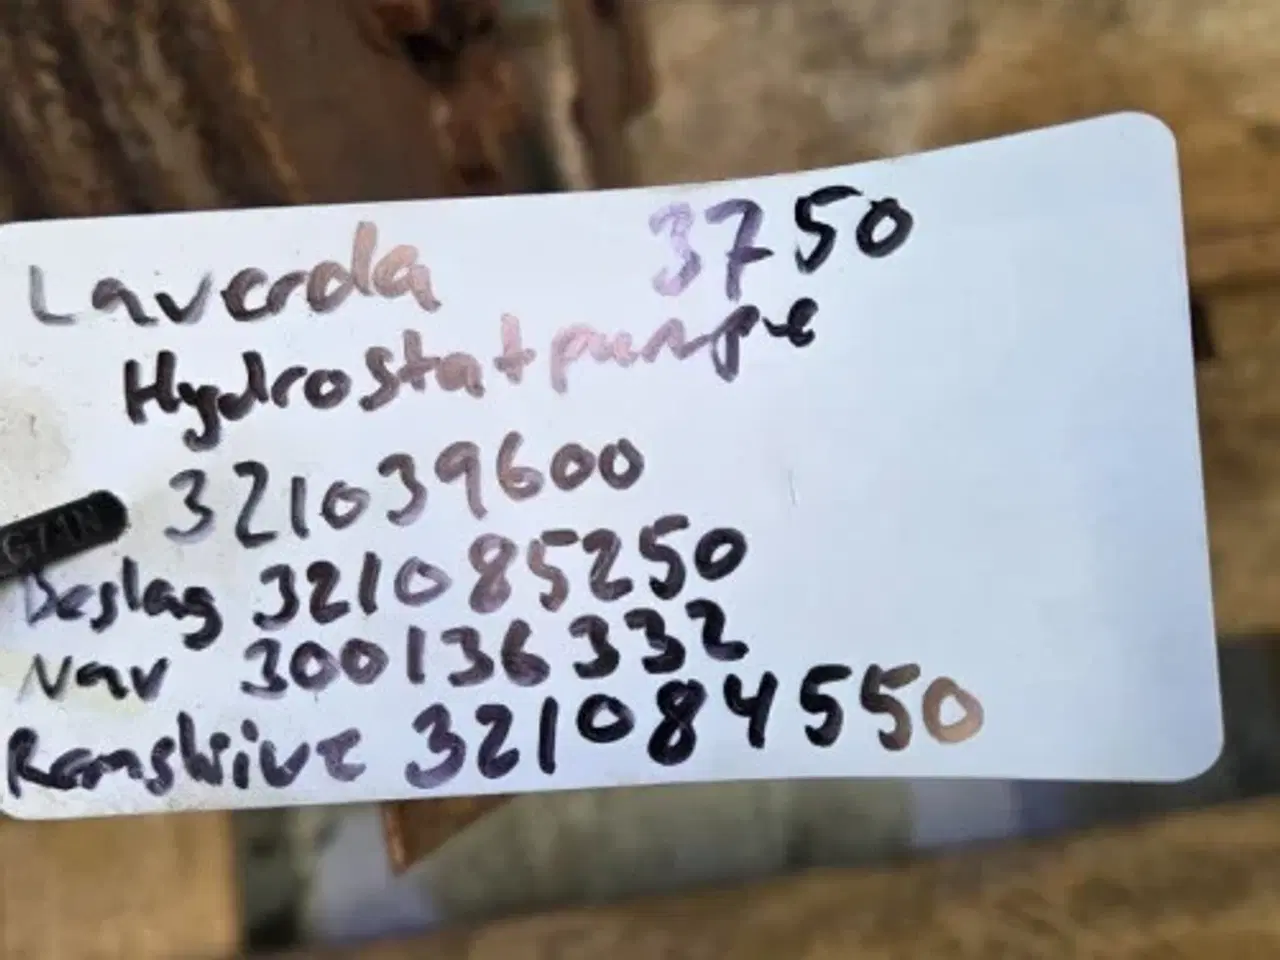 Laverda 3750
Hydrostatpumpe
321039600
Beslag 321085250
Nav 300136332
Remskive 321084550